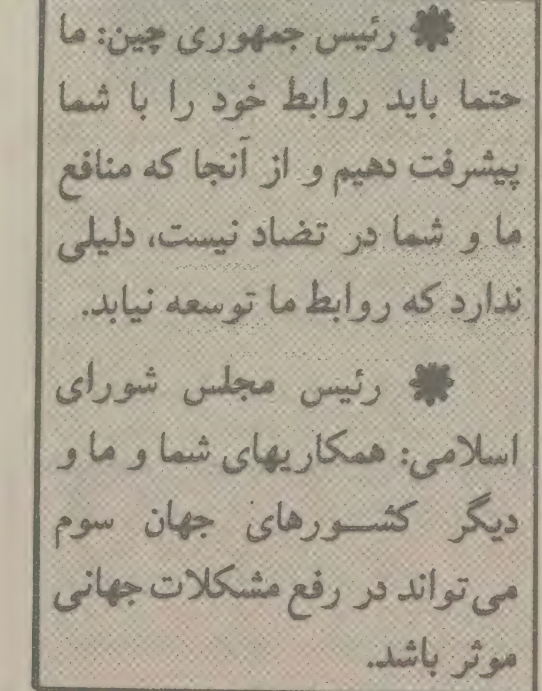 ✽ رئیس جمهوری چین: ما
حتما باید روابط خود را با شما
پیشرفت دهیم و از آنجا که منافع
ما و شما در تضاد نیست، دلیلی
ندارد که روابط ما توسعه نیابد.
✽ رئیس مجلس شورای
اسلامی: همکاریهای شما و ما و
دیگر کشورهای جهان سوم
می‌تواند در رفع مشکلات جهانی
موثر باشد.